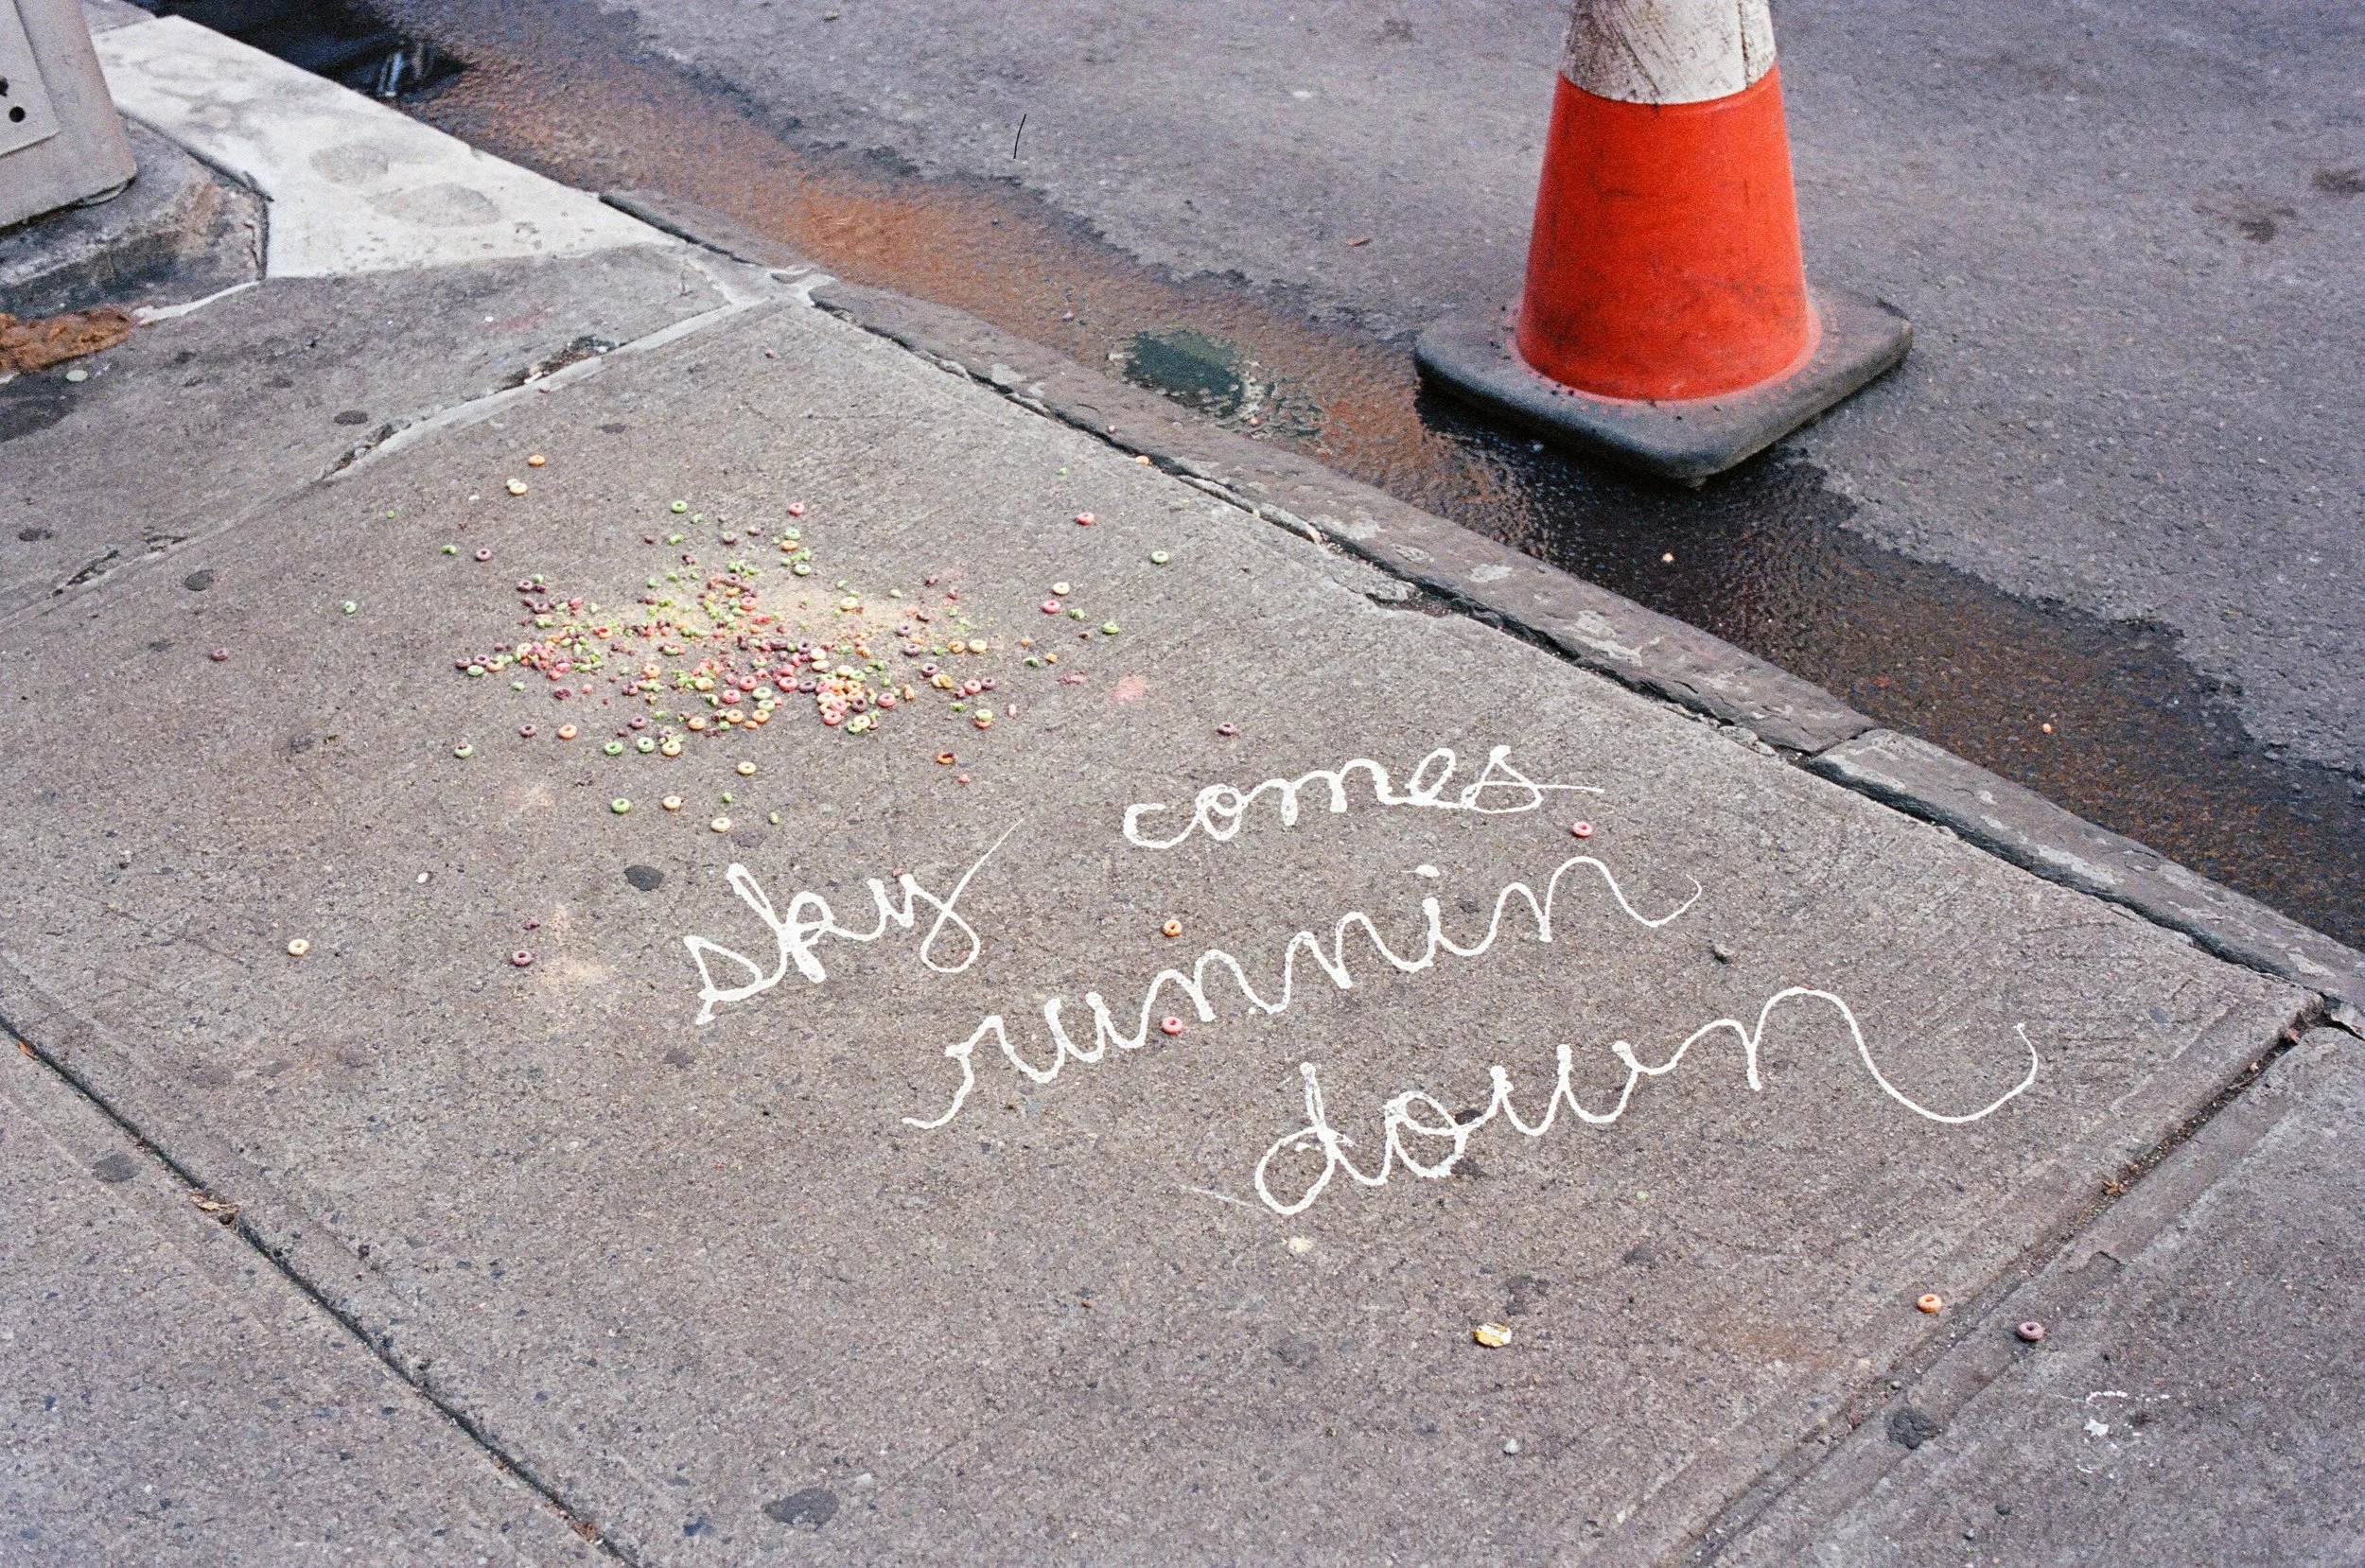 sky comes
runnin
down